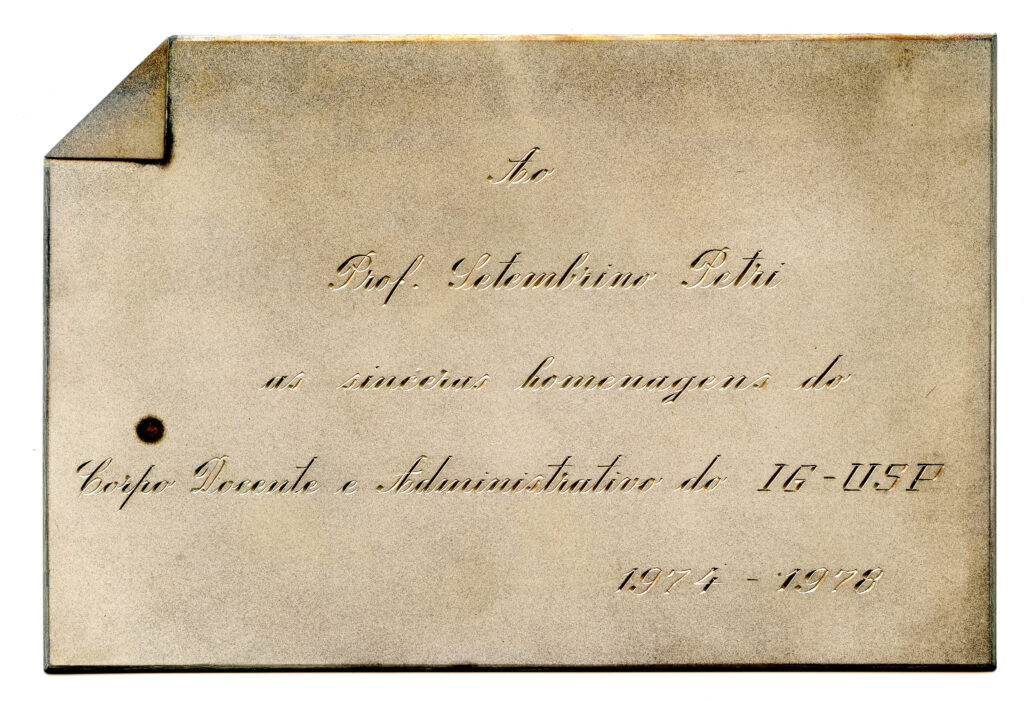 Ao
Prof. Setembrino Petri
as sinceras homenagens do
Corpo Docente e Administrativo do IG-USP
1974 - 1978